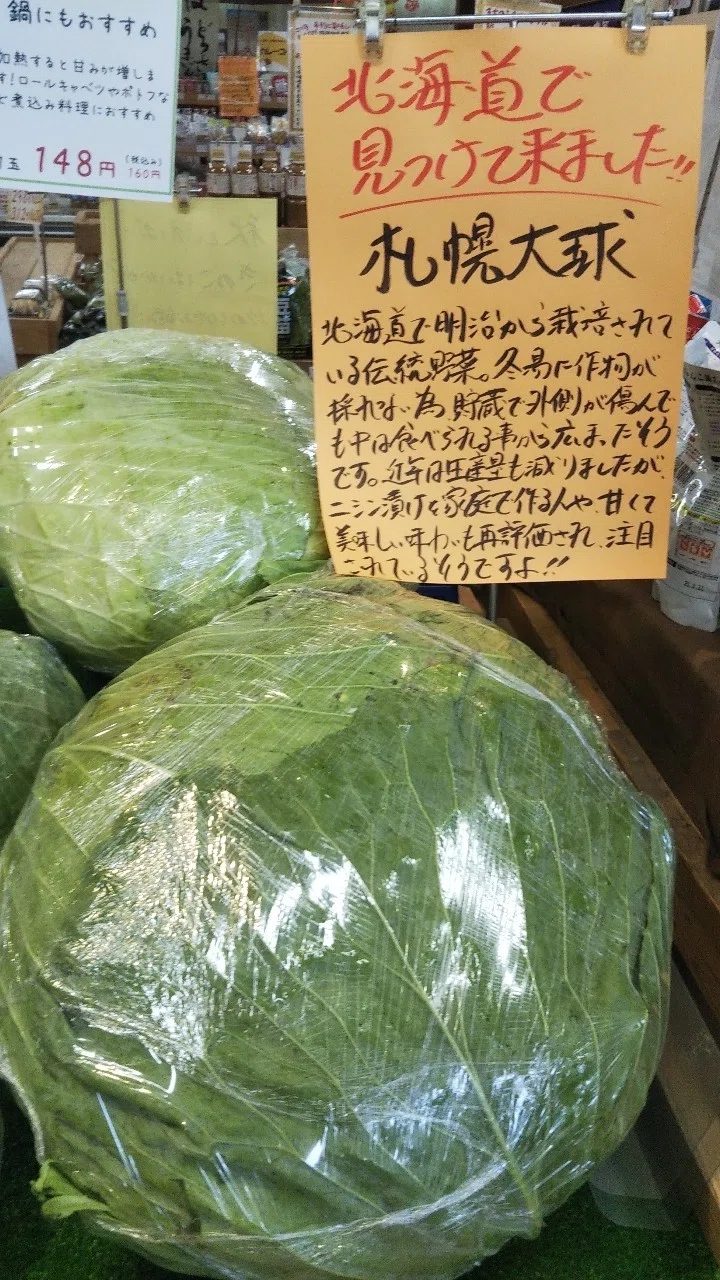 鍋にもおすすめ
加熱すると甘みが増しま
す!ロールキャベツやポトフな
ど煮込み料理におすすめ
1玉 148円 (税込み) 160円
北海道で
見つけて来ました!!
札幌大球
北海道で明治から栽培されて
いる伝統野菜。冬場に作物が
採れない為 貯蔵で外側が傷んで
も中は食べられる事から広まったそう
です。近年は生産量も減りましたが、
ニシン漬けを家庭で作る人や、甘くて
美味しい味わいも再評価され、注目
されているそうですよ!!